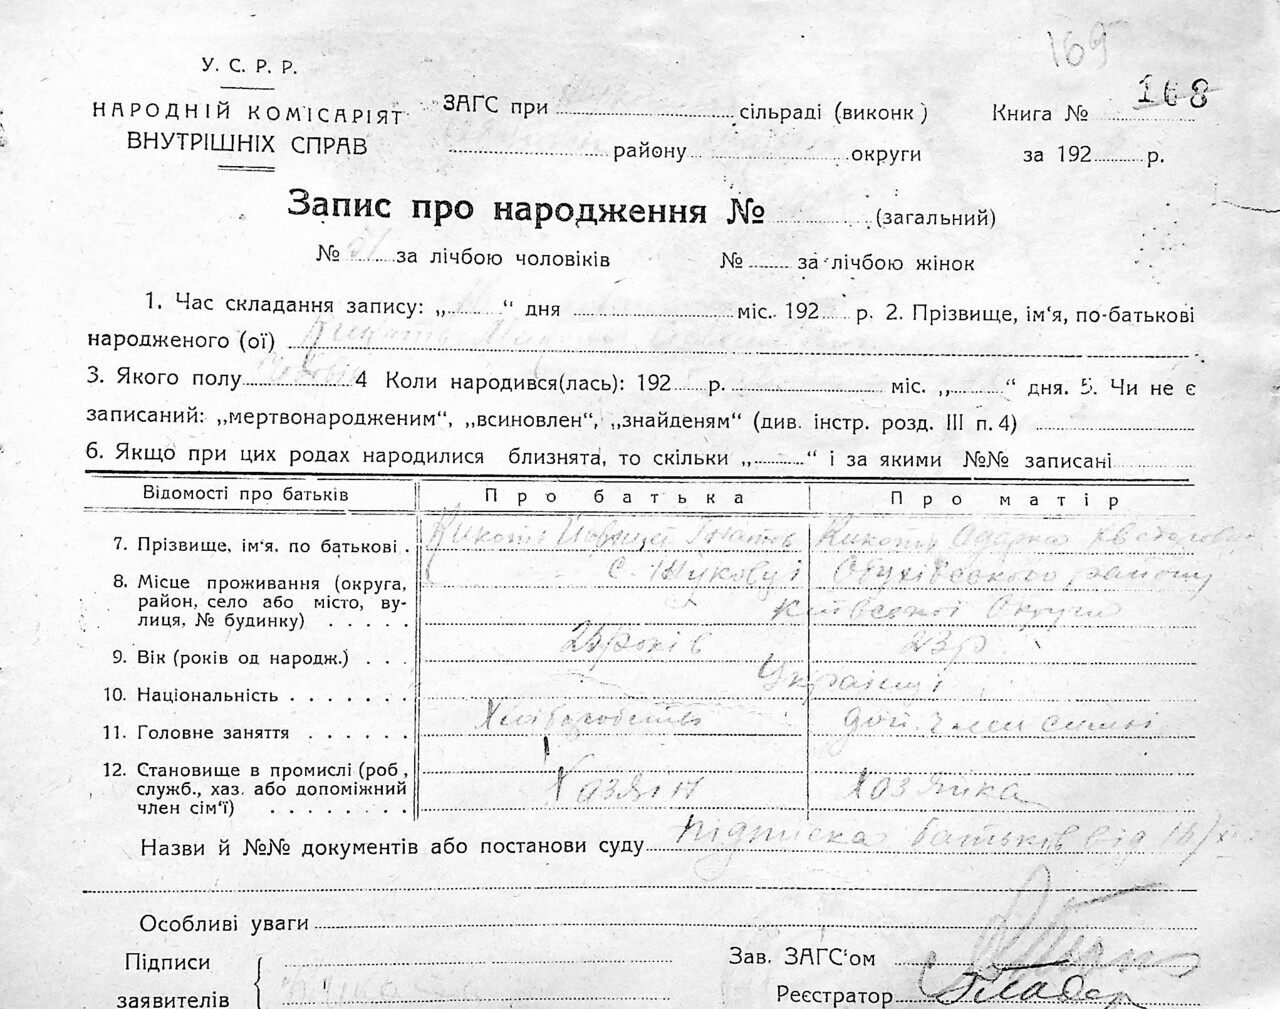 169
У. С. Р. Р.
168
НАРОДНІЙ КОМІСАРІЯТ
ВНУТРІШНІХ СПРАВ
ЗАГС при сільраді (виконк)
району округи
Книга №
за 192 р.
Запис про народження № (загальний)
№ за лічбою чоловіків № за лічбою жінок
1. Час складання запису: „ “ дня міс. 192 р. 2. Прізвище, ім‘я, по-батькові
народженого (ої) Кикоть
3. Якого полу 4 Коли народився(лась): 192 р. міс. „ “ дня. 5. Чи не є
записаний: „мертвонародженим“, „всиновлен“, „знайденям“ (див. інстр. розд. III п. 4)
6. Якщо при цих родах народилися близнята, то скільки „ “ і за якими №№ записані
Відомості про батьків Про батька Про матір
7. Прізвище, ім‘я, по батькові . Кикоть Гнатов Кикоть Одарка
8. Місце проживання (округа, с. Жуковці Обухівського району
район, село або місто, ву- Київської Округи
лиця, № будинку) . . . . .
9. Вік (років од народж.) . . . 25 років 23 р.
10. Національність . . . . . . . Українці
11. Головне заняття . . . . . . Хліборобство доп. член симї
12. Становище в промислі (роб,
служб., хаз. або допоміжний Хазяїн Хозяйка
член сім‘ї) . . . . . . . .
Назви й №№ документів або постанови суду підписка батьків від 16/XI
Особливі уваги
Підписи
заявителів
Зав. ЗАГС‘ом
Реєстратор